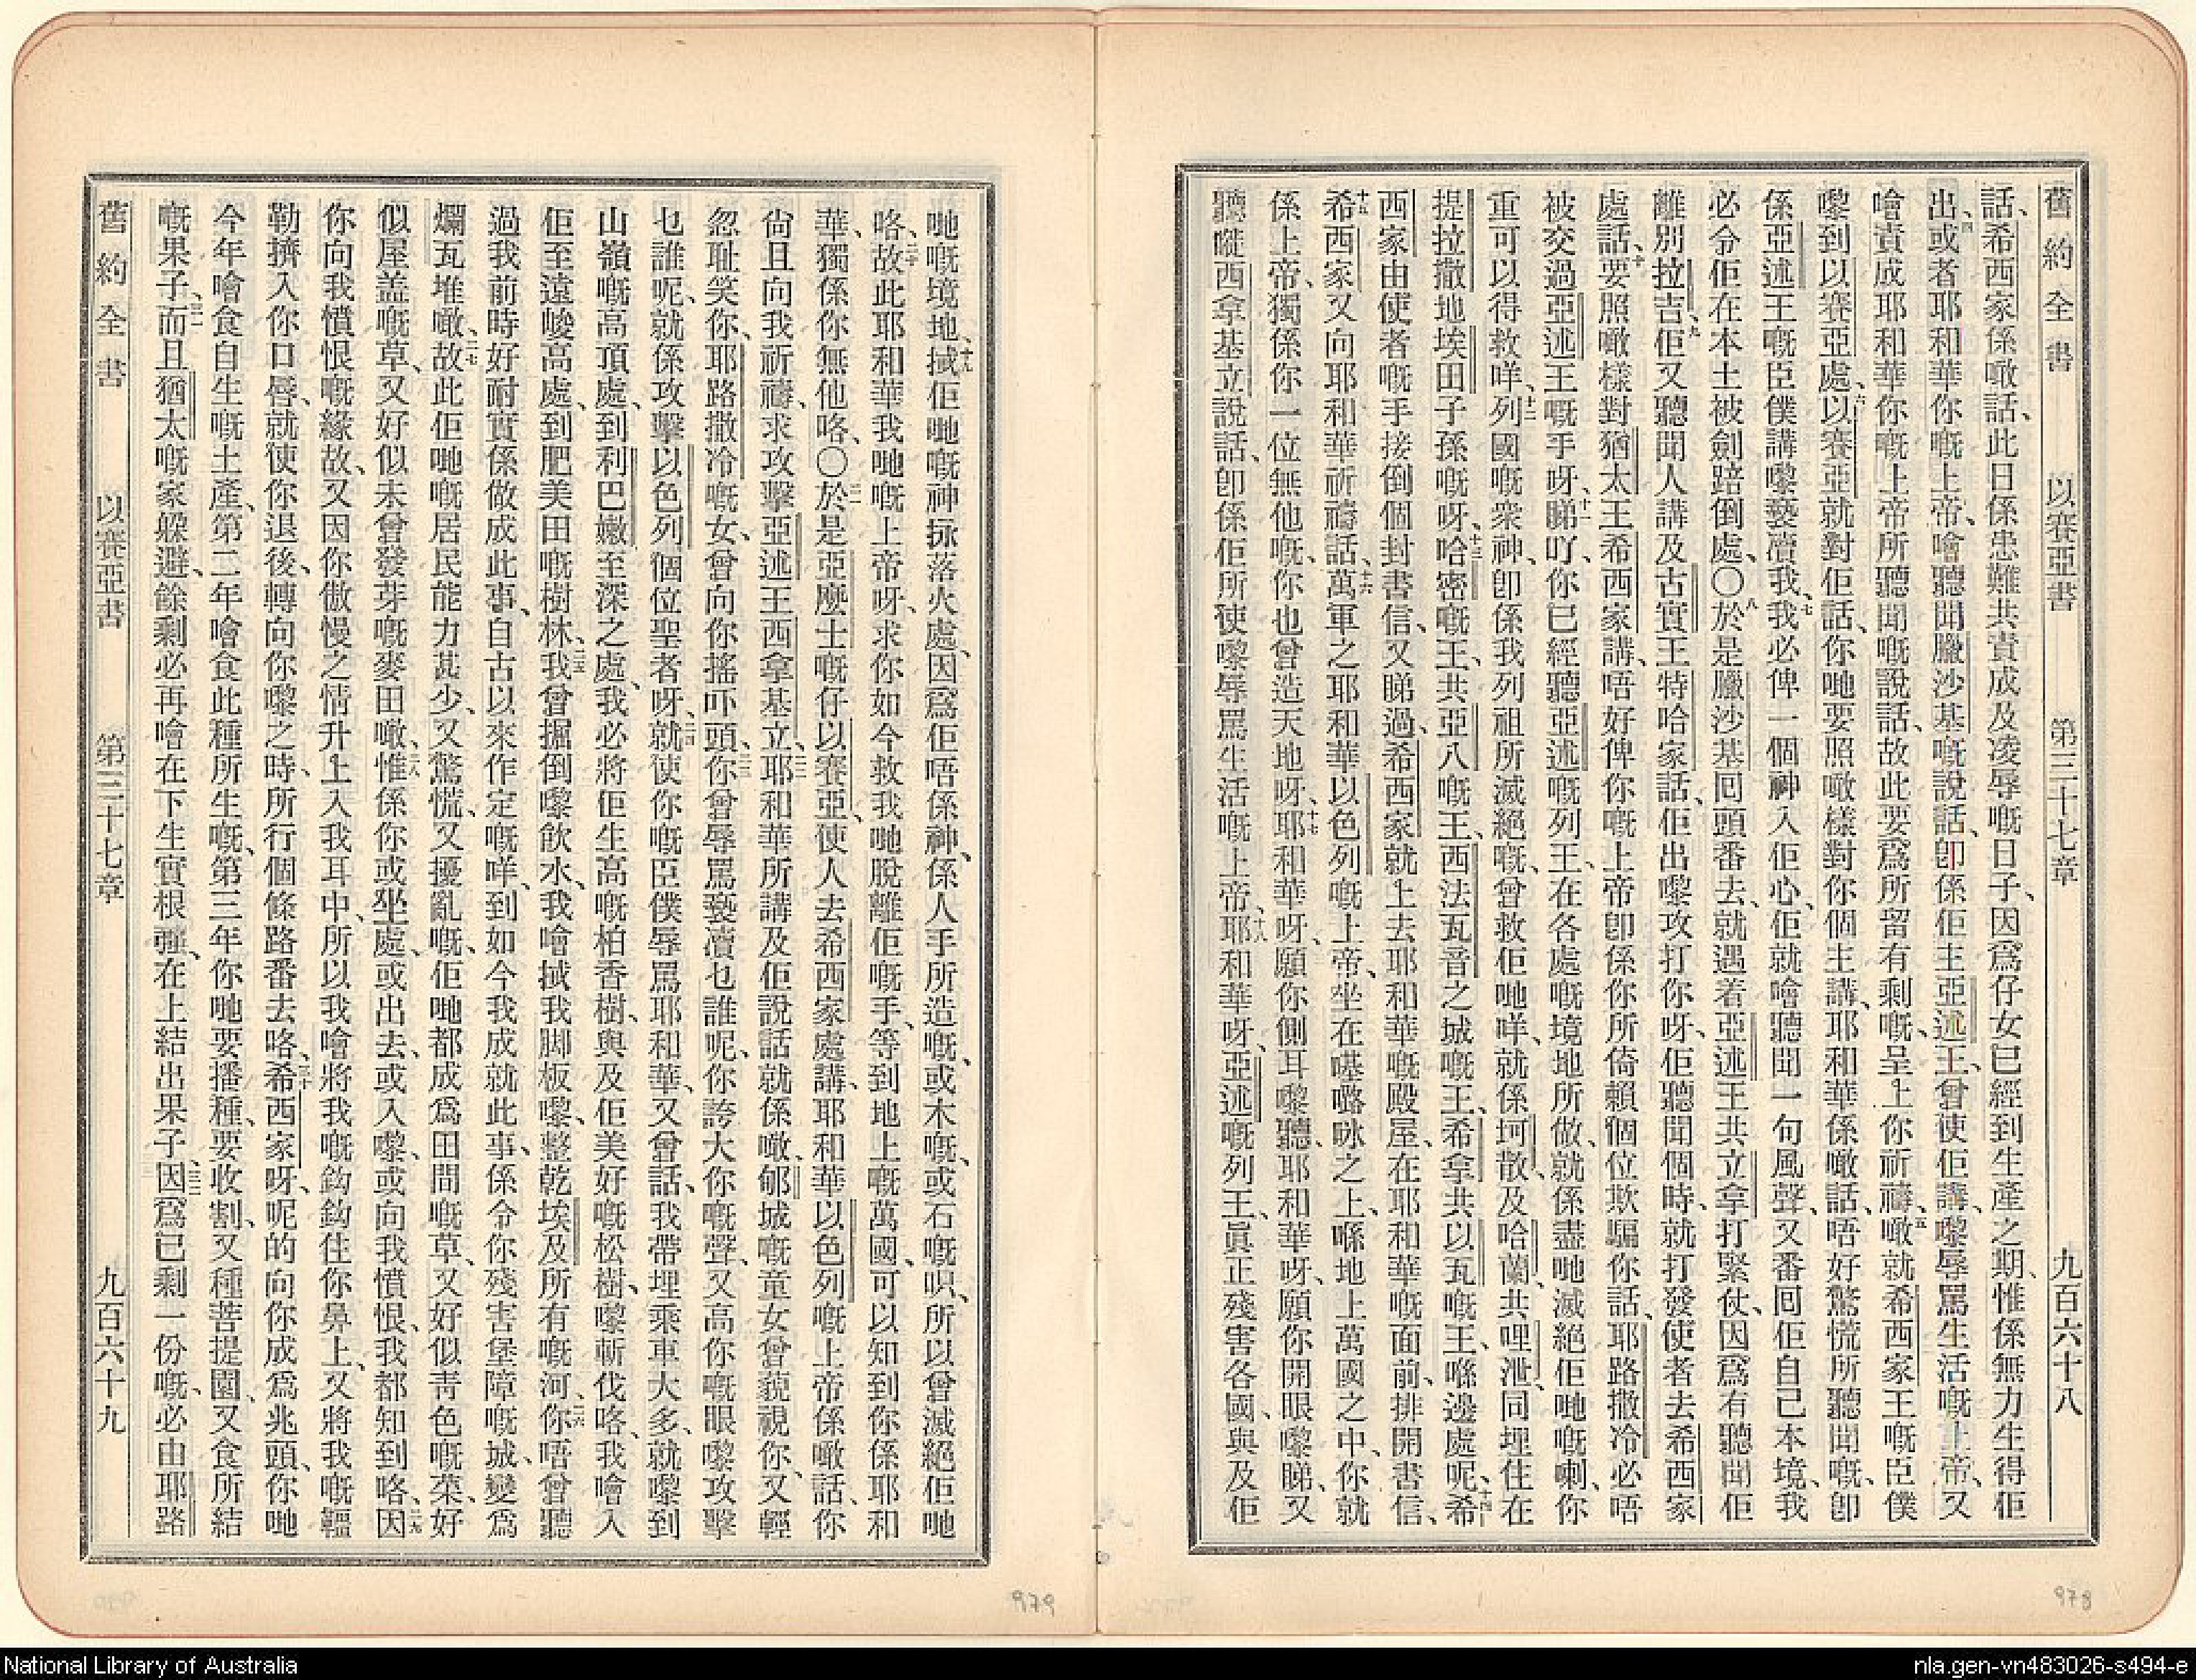 舊約全書 以賽亞書 第三十七章 九百六十八
話、希西家係噉話、此日係患難共責成及凌辱嘅日子、因爲仔女已經到生產之期、惟係無力生得佢
出、四或者耶和華你嘅上帝、噲聽聞臘沙基嘅說話、卽係佢主亞述王、曾使佢講、嚟辱罵生活嘅上帝、又
噲責成耶和華你嘅上帝所聽聞嘅說話、故此要爲所留有剩嘅、呈上你祈禱、五噉就希西家王嘅臣僕
嚟到以賽亞處、六以賽亞就對佢話、你哋要照噉樣對你個主講、耶和華係噉話、唔好驚慌所聽聞嘅、卽
係亞述王嘅臣僕講嚟褻瀆我、七我必俾一個神入佢心、佢就噲聽聞一句風聲、又番囘佢自己本境、我
必令佢在本土被劍踣倒處、〇八於是臘沙基囘頭番去、就遇着亞述王共立拿打緊仗、因爲有聽聞佢
離別拉吉、九佢又聽聞人講及古實王特哈家話、佢出嚟攻打你呀、佢聽聞個時、就打發使者去希西家
處話、十要照噉樣對猶太王希西家講、唔好俾你嘅上帝卽係你所倚賴個位欺騙你話、耶路撒冷必唔
被交過亞述王嘅手呀、十一睇吖、你已經聽亞述嘅列王、在各處嘅境地所做、就係盡哋滅絕佢哋嘅喇、你
重可以得救咩、十二列國嘅衆神、卽係我列祖所滅絕嘅、曾救佢哋咩、就係坷散、及哈蘭、共哩泄、同埋住在
提拉撒地埃田子孫嘅呀、十三哈密嘅王、共亞八嘅王、西法瓦音之城嘅王、希拿共以瓦嘅王、喺邊處呢、十四希
西家由使者嘅手接倒個封書信、又睇過、希西家就上去耶和華嘅殿屋、在耶和華嘅面前、排開書信、
十五希西家又向耶和華祈禱話、十六萬軍之耶和華以色列嘅上帝、坐在𠼻嚕咏之上、喺地上萬國之中、你就
係上帝、獨係你一位無他嘅、你也曾造天地呀、十七耶和華呀、願你側耳嚟聽、耶和華呀、願你開眼嚟睇、又
聽嚨西拿基立說話、卽係佢所使嚟辱罵生活嘅上帝、十八耶和華呀、亞述嘅列王、眞正殘害各國、與及佢
哋嘅境地、十九搣佢哋嘅神掁落火處、因爲佢唔係神、係人手所造嘅、或木嘅、或石嘅呮、所以曾滅絕佢哋
咯、二十故此耶和華我哋嘅上帝呀、求你如今救我哋脫離佢嘅手、等到地上嘅萬國、可以知到你係耶和
華、獨係你無他咯、〇二一於是亞麼士嘅仔以賽亞、使人去希西家處講、耶和華以色列嘅上帝係噉話、你
尙且向我祈禱、求攻擊亞述王西拿基立、二二耶和華所講及佢說話就係噉、郇城嘅童女曾藐視你、又輕
忽恥笑你、耶路撒冷嘅女、曾向你搖吓頭、二三你曾辱罵褻瀆乜誰呢、你誇大你嘅聲、又高你嘅眼嚟攻擊
乜誰呢、就係攻擊以色列個位聖者呀、二四就使你嘅臣僕辱罵耶和華、又曾話、我帶埋乘車大多、就嚟到
山嶺嘅高頂處、到利巴嫩至深之處、我必將佢生高嘅柏香樹、與及佢美好嘅松樹、嚟斬伐咯、我噲入
佢至遠峻高處、到肥美田嘅樹林、二五我曾掘倒嚟飲水、我噲搣我脚板嚟、整乾埃及所有嘅河、二六你唔曾聽
過我前時好耐實係做成此事、自古以來作定嘅咩、到如今我成就此事、係令你殘害堡障嘅城、變爲
爛瓦堆噉、二七故此佢哋嘅居民能力甚少、又驚慌、又擾亂嘅、佢哋都成爲田間嘅草、又好似靑色嘅菜、好
似屋盖嘅草、又好似未曾發芽嘅麥田噉、二八惟係你或坐處、或出去、或入嚟、或向我憤恨、我都知到咯、二九因
你向我憤恨嘅緣故、又因你傲慢之情升上入我耳中、所以我噲將我嘅鈎鈎住你鼻上、又將我嘅韁
勒擠入你口唇、就使你退後、轉向你嚟之時、所行個條路番去咯、三十希西家呀、呢的向你成爲兆頭、你哋
今年噲食自生嘅土產、第二年噲食此種所生嘅、第三年你哋要播種、要收割、又種菩提園、又食所結
嘅果子、三一而且猶太嘅家躱避、餘剩必再噲在下生實根𧄍、在上結出果子、三二因爲已剩一份嘅、必由耶路
舊約全書 以賽亞書 第三十七章 九百六十九
978
979
National Library of Australia
nla.gen-vn483026-s494-e